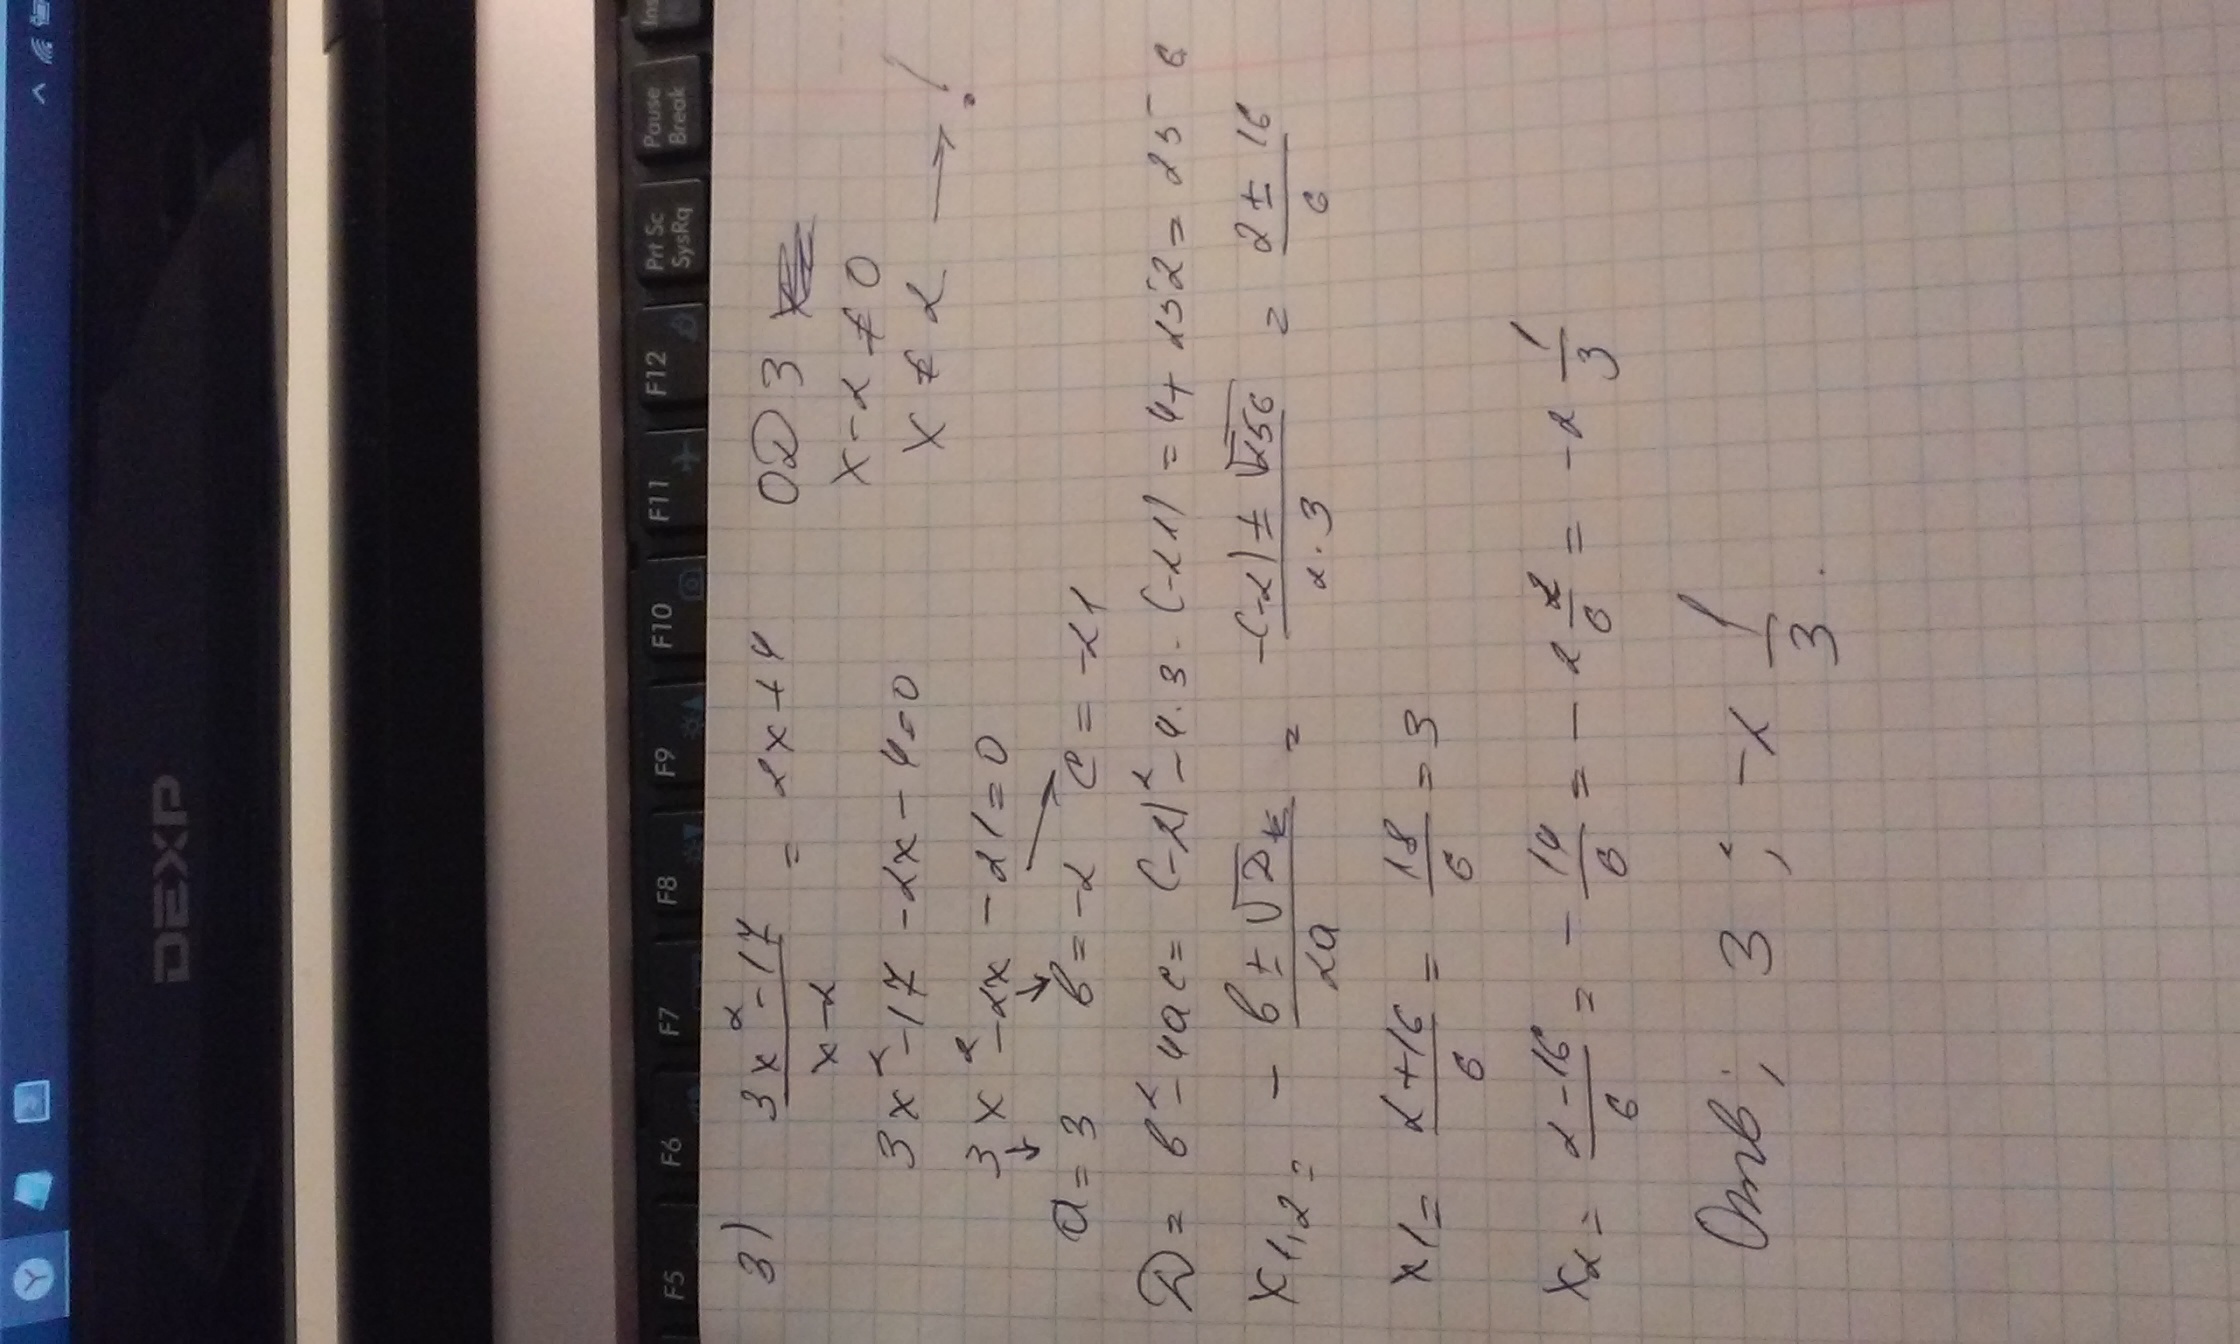 DEXP
F5 F6 F7 F8 F9 F10 F11 F12 Prt Sc SysRq Pause Break Ins
3) (3x² - 17)/(x - 2) = 2x + 4 ОДЗ
x - 2 ≠ 0
3x² - 17 - 2x - 4 = 0 x ≠ 2 → !
3x² - 2x - 21 = 0
a = 3 b = -2 c = -21
D = b² - 4ac = (-2)² - 4·3·(-21) = 4 + 252 = 256
x1,2 = (-b ± √D)/(2a) = (-(-2) ± √256)/(2·3) = (2 ± 16)/6
x1 = (2 + 16)/6 = 18/6 = 3
x2 = (2 - 16)/6 = -14/6 = -2 2/6 = -2 1/3
Отв: 3; -2 1/3.